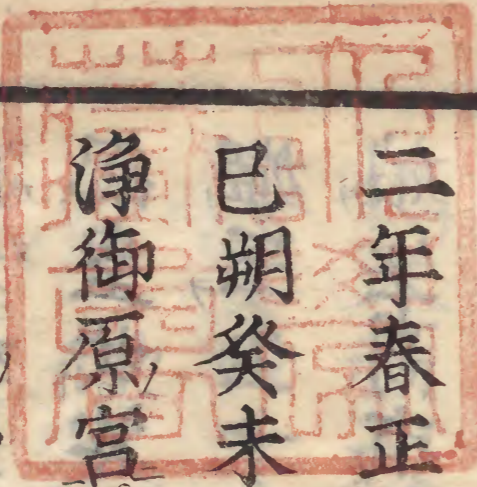 二年春正
巳朔癸未
浄御原宮